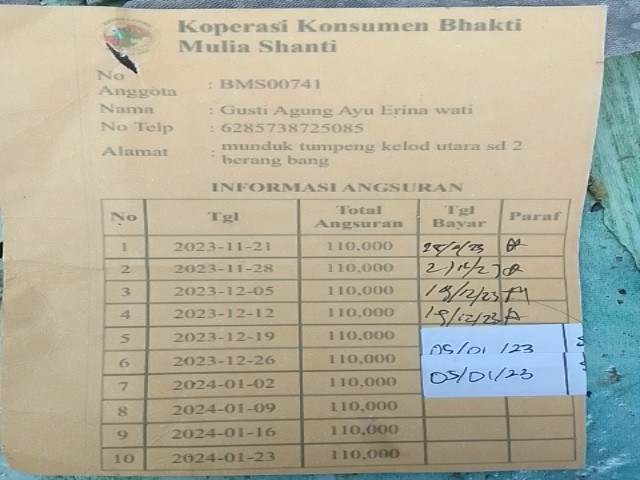 Koperasi Konsumen Bhakti
Mulia Shanti
No
Anggota : BMS00741
Nama : Gusti Agung Ayu Erina wati
No Telp : 6285738725085
Alamat : munduk tumpeng kelod utara sd 2
berang bang
INFORMASI ANGSURAN
No Tgl Total Angsuran Tgl Bayar Paraf
1 2023-11-21 110,000
2 2023-11-28 110,000
3 2023-12-05 110,000 19/12/23
4 2023-12-12 110,000 19/12/23
5 2023-12-19 110,000 05/01/23
6 2023-12-26 110,000 05/01/23
7 2024-01-02 110,000
8 2024-01-09 110,000
9 2024-01-16 110,000
10 2024-01-23 110,000